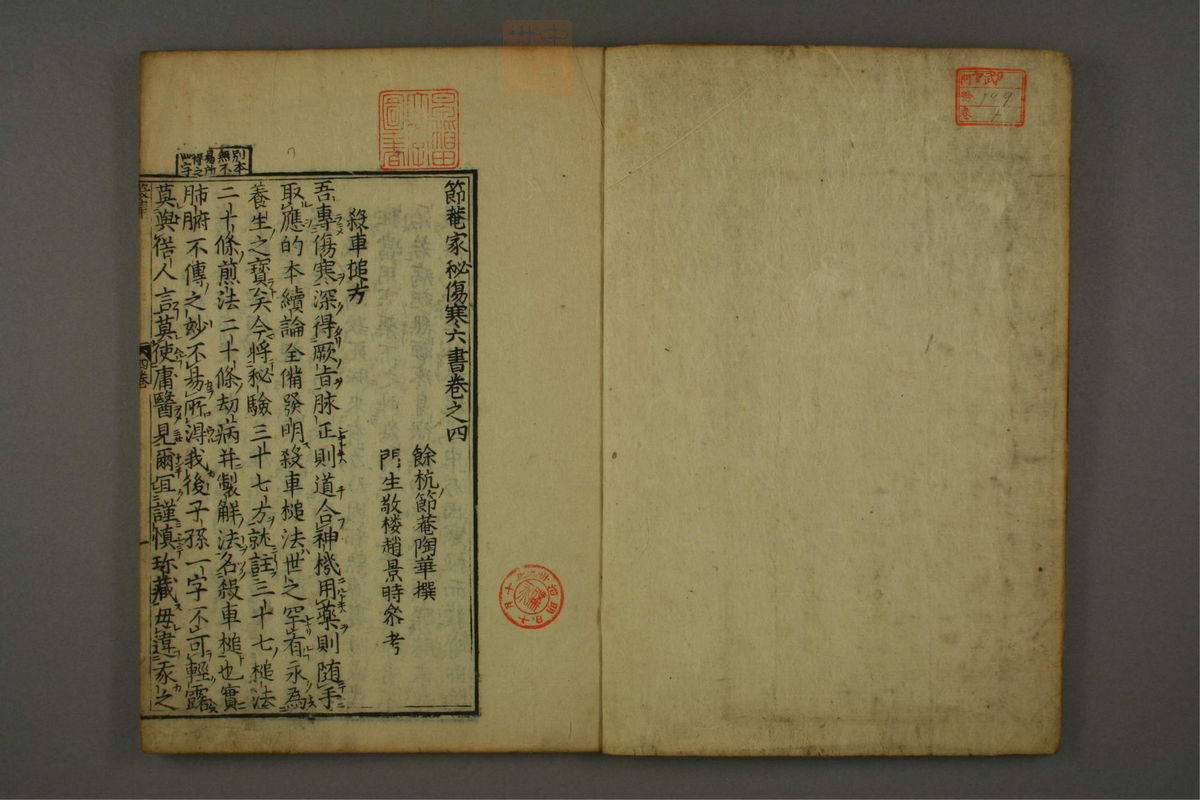 節菴家秘傷寒六書巻之四
餘杭節菴陶華撰
門生敬楼趙景時叅考
殺車槌方
吾專傷寒深得厥旨脉正則道合神機用藥則随手
取應的本續論全備發明殺車槌法世之罕有永為
養生之寳矣今将秘驗三十七方就註三十七槌法
二十條煎法二十條刼病并製觧法名殺車槌也實
肺腑不傳之妙不易所得我後子孫一字不可輕露
莫與俗人言莫使庸醫見爾宜謹慎珎藏毋違豕之
別本
無不
易所
得之
四巻
一
199